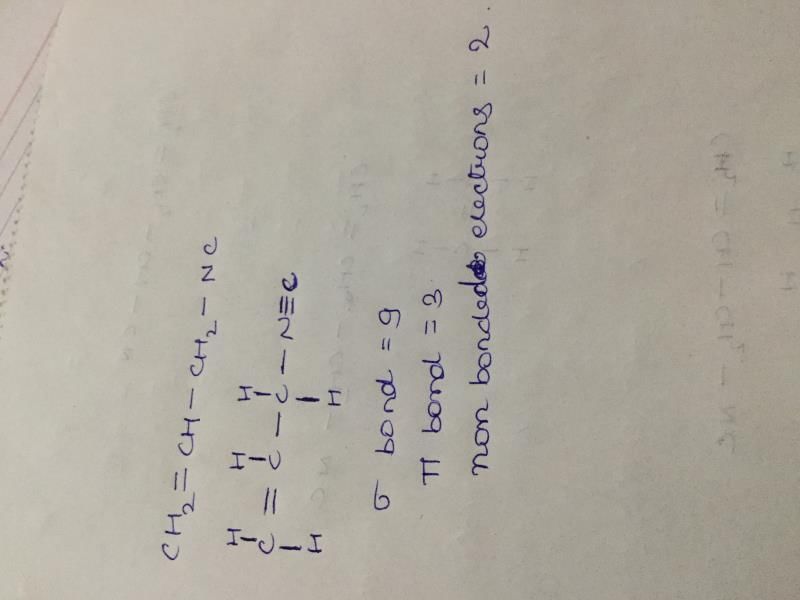 CH₂ = CH – CH₂ – NC
H H H
C = C – C – N ≡ C
H H
σ bond = 9
π bond = 3
non bonded electrons = 2.